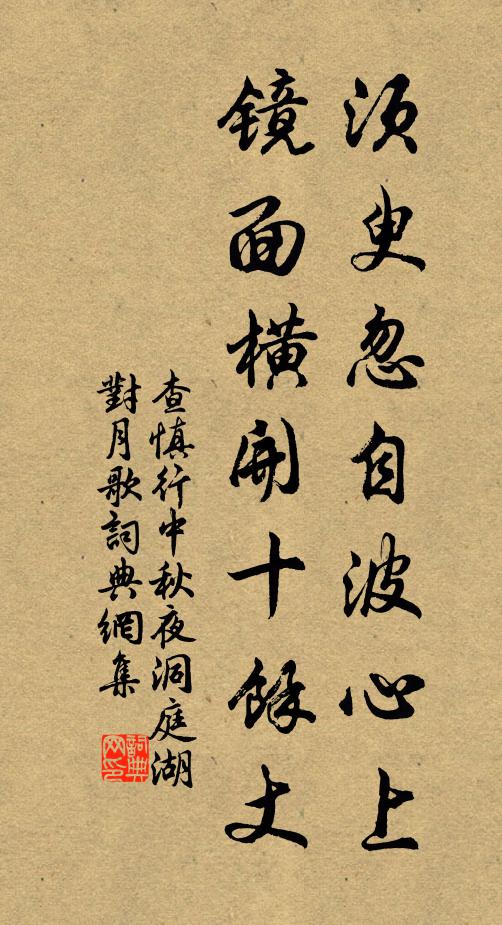 須臾忽自波心上
鏡面橫開十餘丈
查慎行中秋夜洞庭湖
對月歌詞典網集
詞典
网印